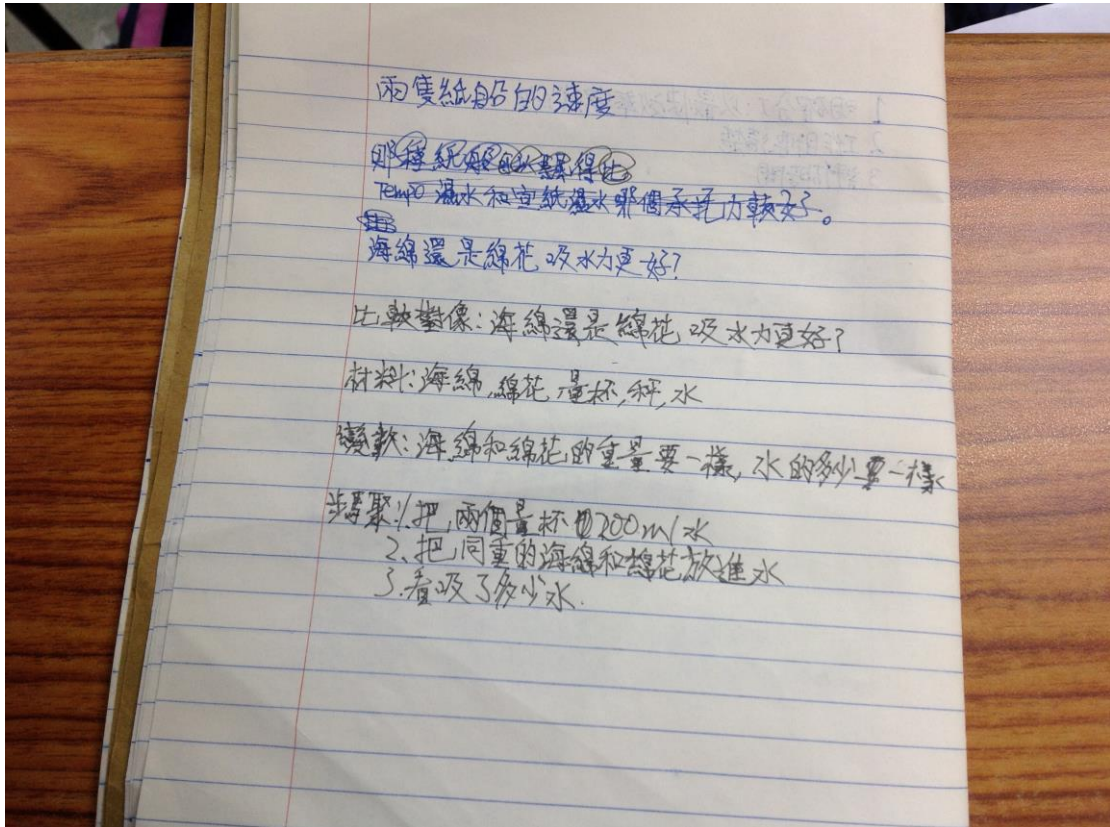 兩隻紙船的速度
那種紙船
Tempo 濕水和宣紙濕水哪個承托力較好。
海綿還是綿花吸水力更好?
比較對像:海綿還是綿花吸水力更好?
材料:海綿,綿花,量杯,秤,水
變數:海綿和綿花的重量要一樣,水的多少要一樣
步驟:1.把兩個量杯加200ml水
2.把同重的海綿和綿花放進水
3.看吸了多少水.